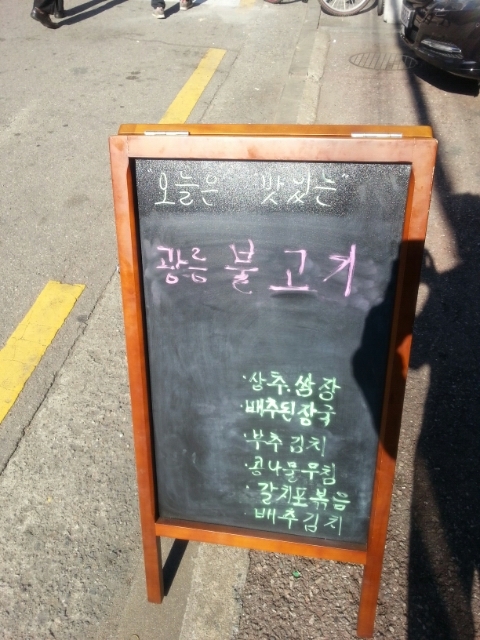 "오늘은" "맛있는"
광릉 불고기
·상추.쌈장
·배추된장국
·부추김치
·콩나물무침
·갈치포볶음
·배추김치